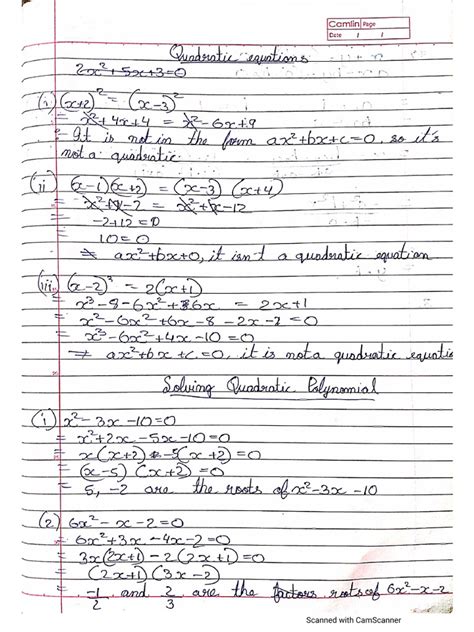 Camlin Page
Date / /
Quadratic equations
2x²+5x+3=0
(i) (x+2)² = (x-3)²
= x²+4x+4 = x²-6x+9
= It is not in the form ax²+bx+c=0, so it's
not a quadratic.
(ii) (x-1)(x+2) = (x-3)(x+4)
= x²+x-2 = x²+x-12
= -2+12=0
= 10=0
⇒ ax²+bx+0, it isn't a quadratic equation
(iii) (x-2)³ = 2(x+1)
= x³-8-6x²+6x = 2x+1
= x²-6x²+6x-8-2x-2=0
= x³-6x²+4x-10=0
⇒ ax²+bx+c=0, it is not a quadratic equatio
Solving Quadratic Polynomial
(1) x²-3x-10=0
= x²+2x-5x-10=0
= x(x+2)-5(x+2)=0
= (x-5)(x+2)=0
= 5, -2 are the roots of x²-3x-10
(2) 6x²-x-2=0
= 6x²+3x-4x-2=0
= 3x(2x+1)-2(2x+1)=0
= (2x+1)(3x-2)
= -1/2 and 2/3 are the factors roots of 6x²-x-2
Scanned with CamScanner